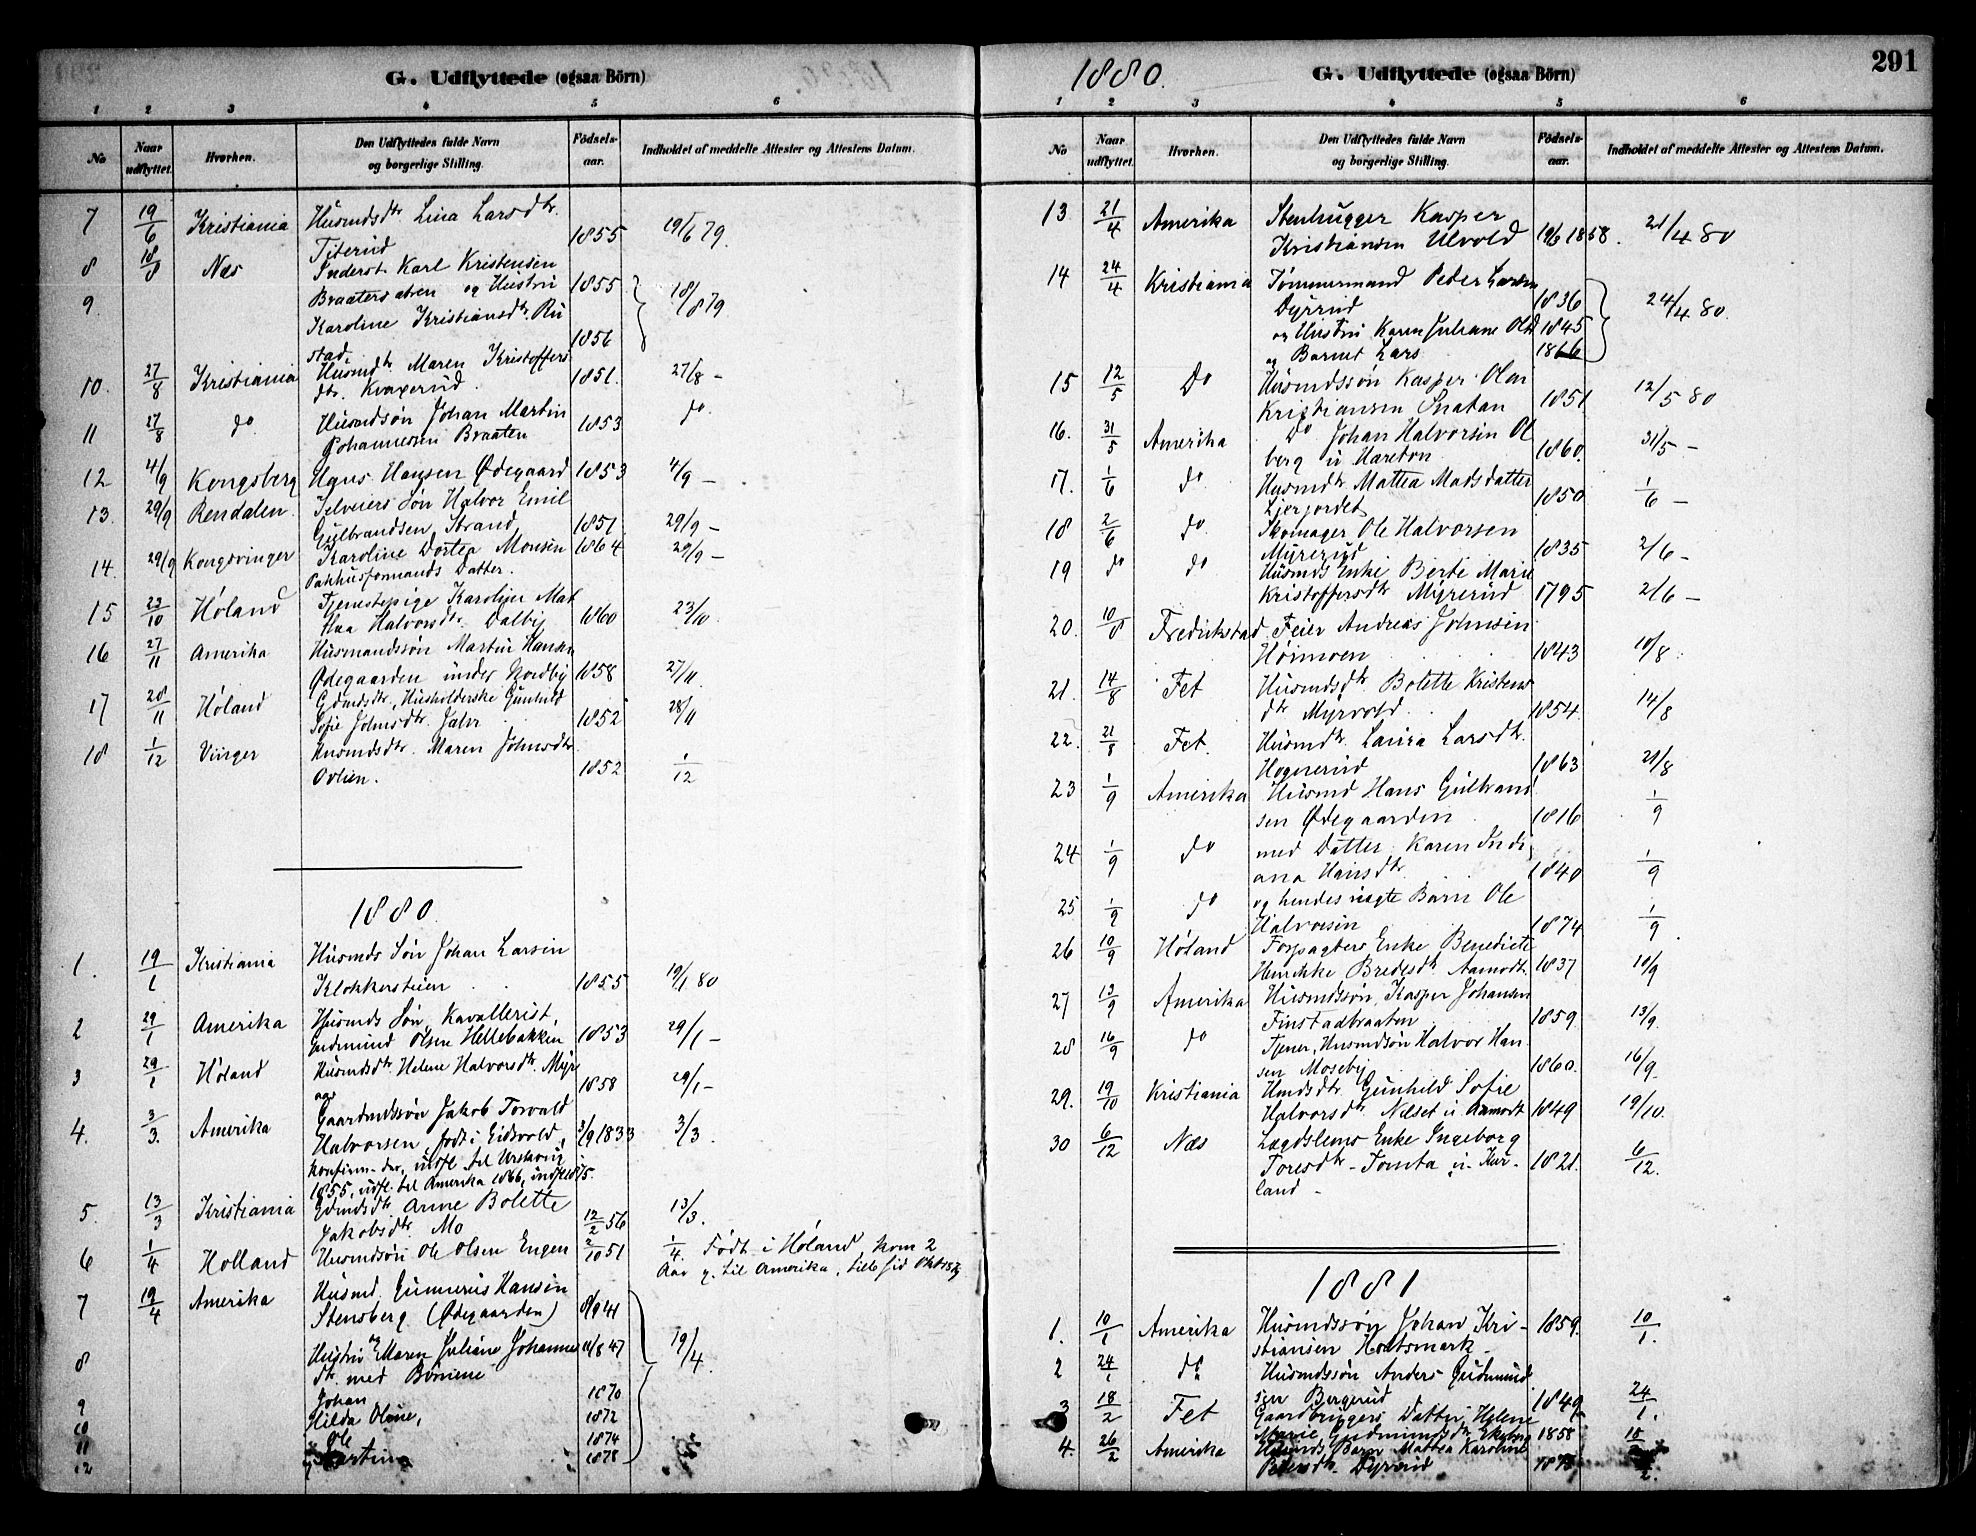 G. Udflyttede (ogsaa Börn)
1 2 3 4 5 6
No Naar udflyttet. Hvorhen. Den Udflyttedes fulde Navn og borgerlige Stilling. Födsels-aar. Indholdet af meddelte Attester og Attestens Datum.
7 19/6 Kristiania Husmdsdtr Lina Larsdtr.
Titerud 1855 19/6 79.
8 18/8 Næs Inderst Karl Kristensen
Braatersaten og Hustru 1855
9 Karoline Kristiansdtr. Ru 18/8 79
stad. 1856
10. 27/8 Kristiania Husmdtr Maren Kristoffers
dtr. 1851. 27/8 –
11 27/8 do Husmdsøn Johan Martin do.
Johannesen Braaten 1853
12 4/9 Kongsberg Hans Hansen Ødegaard 1853 4/9 –
13. 29/9 Rendalen Selveiers Søn Halvor Emil
Gulbrandsen, Strand 1851 29/9 –
14. 29/9 Kongsvinger Karoline Dortea Monsen 1864 29/9 –
Pakhusformands Datter.
15 23/10 Höland Tjenestepige Karoline Mat
thea Halvorsdtr. Dalby 1860 23/10.
16 27/11 Amerika Husmandssøn Martin Hansen
Ødegaarden under Nordby 1858 27/11.
17 28/11 Höland Gdmdsdtr, Husholderske Gunhild
Sofie Johnsdtr. 1852 28/11
18 1/12 Vinger Husmdsdtr. Maren Johnsdtr
Ovlien. 1852 1/12
1880.
1. 19/1 Kristiania Husmds Søn Johan Larsen
Klokkersteien 1855 19/1 80
2 29/1 Amerika Husmds Søn, Kavallerist,
Gudmund Olsen Hellebakken 1853 29/1 –
3 29/1 Höland Husmdsdtr. Helene Halvorsdtr. Myr
1858 29/1 –
4. 3/3. Amerika Gaardmdssøn Jakob Torvald
Halvorsen, født i Eidsvold, 3/9 1833 3/3.
konfirm. der, indfl. til Urskoug
1855, udfl. til Amerika 1866, indfl. 1875.
5. 13/3 Kristiania Gdmdsdtr Anne Bolette 13/3.
Jakobsdtr. Mo 12/2 56
6 1/4 Holland Husmdsøn Ole Olsen Engen 2/10 51 1/4. Født i Höland, kom 2
Aar g. til Amerika,
7 19/4 Amerika Husmd. Gunnerius Hansen
Stensberg (Ødegaarden) 8/9 41
8 Hustru Maren Juliane Johannes 11/8 47 19/4.
dtr. med Børnene
9 Johan 1870
10 Hilda Oline, 1872
11 Ole 1874
12 og Martine 1878
1880.
G. Udflyttede (ogsaa Börn)
291
1 2 3 4 5 6
No Naar udflyttet. Hvorhen. Den Udflyttedes fulde Navn og borgerlige Stilling. Födsels-aar. Indholdet af meddelte Attester og Attestens Datum.
13 21/4 Amerika Stenhugger Kasper
Kristiansen Ulvold 19/6 1858. 21/4 80
14 24/4 Kristiania Tömmermand Peder Larsen
Dyrrud 1836 24/4 80.
og Hustru Karen Juliane Olsd 1845
og Barnet Lars 1866
15 12/5 Do Husmdssøn Kasper Olai
Kristiansen Snatan 1851 12/5 80
16. 31/5 Amerika Do Johan Halvorsen Ol
berg u Hareton 1860. 31/5 –
17. 1/6 do Husmdtr Mattea Madsdatter
1850 1/6 –
18 2/6 do. Skomager Ole Halvorsen
Myrerud 1835 2/6 –
19 do do Husmds Enke Berte Marie
Kristoffersdtr Myrerud 1795 2/6 –
20. 10/8 Fredrikstad Feier Andreas Johnsen
Høimoen 1843 10/8.
21. 14/8 Fet Husmdsdtr. Bolette Kristens
dtr Myrvold 1854. 14/8
22. 21/8 Fet. Husmdtr. Laura Larsdtr.
Hognerud 1863 21/8
23 1/9 Amerika Husmd Hans Gulbrand
sen Ødegaarden 1816 1/9
24 1/9 do med Datter Karen Indi
ana Hansdtr. 1840 1/9
25 1/9 do og hendes uægte Barn Ole
Halvorsen 1874 1/9
26 10/9 Höland Forpagters Enke Benedicte
Henrikke Bredesdtr. Aamodt 1837 10/9
27 13/9 Amerika Husmdssøn, Kasper Johansen
Finstadbraaten 1859. 13/9.
28 16/9 do Tjener, Husmdsøn Halvor Han
sen Moseby 1860. 16/9.
29. 19/10 Kristiania Hmdsdtr Gunhild Sofie
Halvorsdtr. Nelset u. Aamodt 1849 19/10.
30 6/12 Næs Lægdslems Enke Ingeborg
Toresdtr – Tomta u. Kur- 1821. 6/12.
land –
1881
1. 10/1 Amerika Husmdssøn Johan Kri- 1859. 10/1.
stiansen Holtsmark –
2 24/1 do Husmdssøn Anders Gudmund
sen Bergerud 1849. 24/1.
3 18/2 Fet Gaardbrugers Datter Helene
Marie Gudmundsdtr 1858
4. 26/2 Amerika Husmds Barn Mattea Karoline
Pedersdtr. Dyrerud